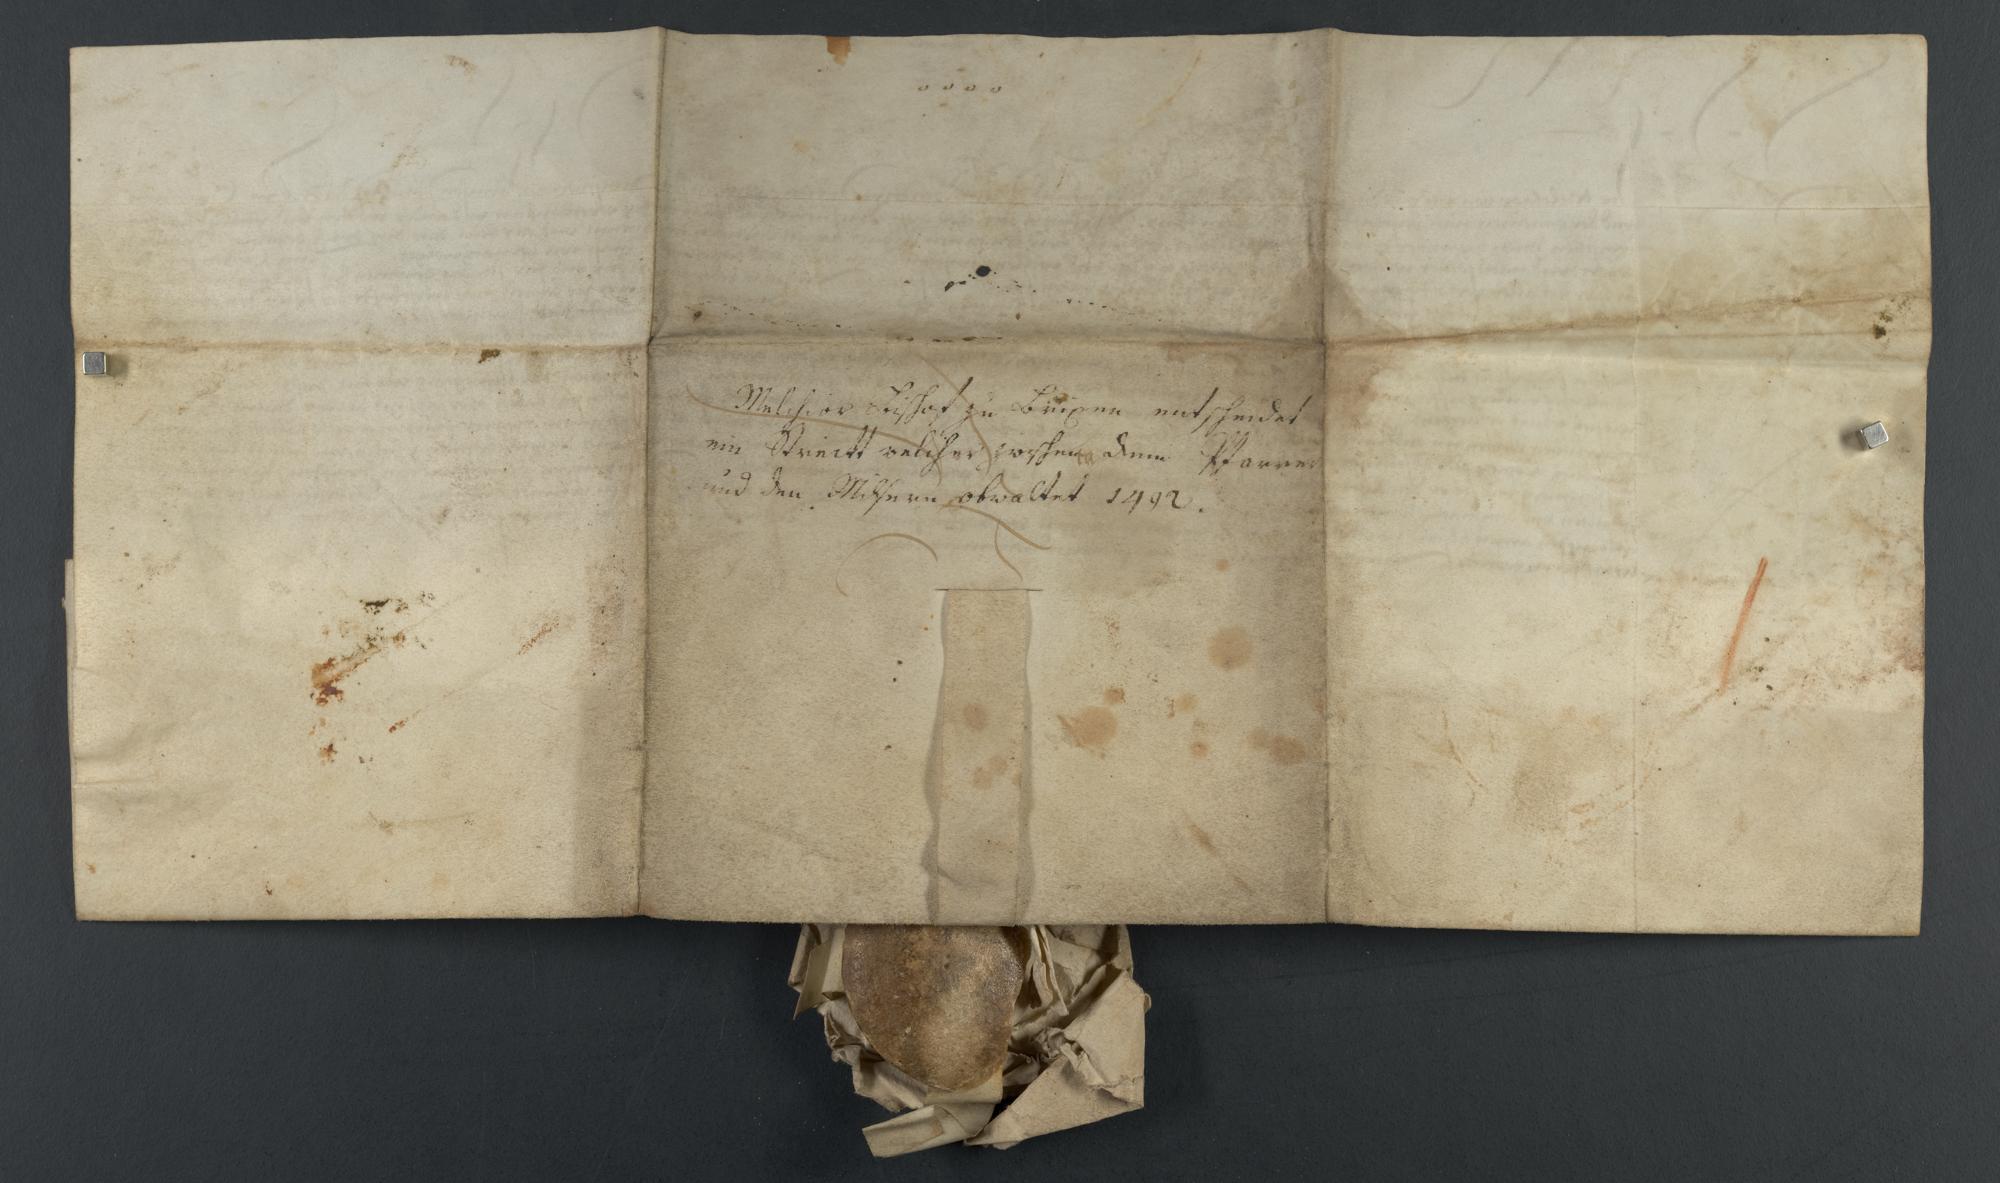 Melchior Bishof zu Brixen entscheidet
ein Streitt welcher zwishen dem Pfarrer
und den Mesnern obwaltet 1492.